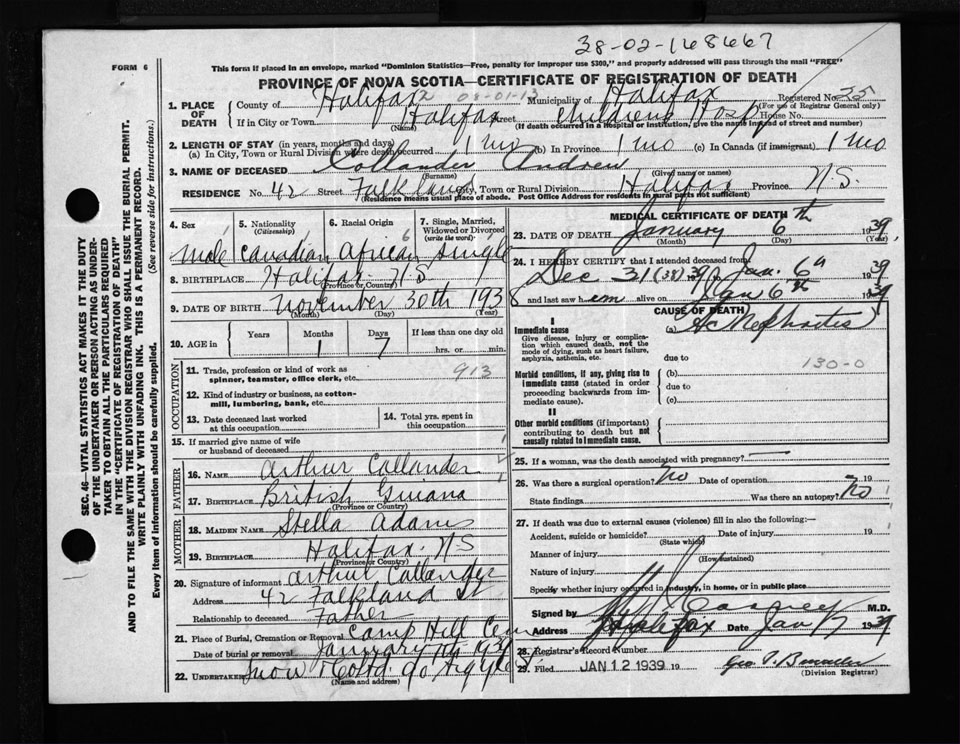 38-02-148667
FORM 6
This form if placed in an envelope, marked "Dominion Statistics—Free, penalty for improper use $300," and properly addressed will pass through the mail "FREE"
PROVINCE OF NOVA SCOTIA—CERTIFICATE OF REGISTRATION OF DEATH
1. PLACE OF DEATH
County of Halifax Municipality of Halifax Registered No. 35
(For use of Registrar General only)
If in City or Town Halifax Street Childrens Hosp House No.
(Name) (If death occurred in a hospital or institution, give the name instead of street and number)
2. LENGTH OF STAY (in years, months and days)
(a) In City, Town or Rural Division where death occurred 1 mo (b) In Province 1 mo (c) In Canada (if immigrant) 1 mo
3. NAME OF DECEASED Callander Andrew
(Surname) (Given name or names)
RESIDENCE No. 42 Street Falkland City, Town or Rural Division Halifax Province N.S.
(Residence means usual place of abode. Post Office Address for residents in rural parts not sufficient)
4. Sex Male
5. Nationality (Citizenship) Canadian
6. Racial Origin African
7. Single, Married, Widowed or Divorced (write the word) Single
8. BIRTHPLACE Halifax N.S
(Province or Country)
9. DATE OF BIRTH November 30th 1938
(Month) (Day) (Year)
10. AGE in Years Months Days If less than one day old
1 7 hrs. or min.
OCCUPATION
11. Trade, profession or kind of work as spinner, teamster, office clerk, etc. 913
12. Kind of industry or business, as cotton-mill, lumbering, bank, etc.
13. Date deceased last worked at this occupation
14. Total yrs. spent in this occupation
15. If married give name of wife or husband of deceased
FATHER
16. NAME Arthur Callander
17. BIRTHPLACE British Guiana
(Province or Country)
MOTHER
18. MAIDEN NAME Stella Adams
19. BIRTHPLACE Halifax N.S
(Province or Country)
20. Signature of informant Arthur Callander
Address 42 Falkland St
Relationship to deceased Father
21. Place of Burial, Cremation or Removal Camp Hill Cem
Date of burial or removal January
22. UNDERTAKER Snow & Co Ltd 90 Argyle
(Name and address)
MEDICAL CERTIFICATE OF DEATH
23. DATE OF DEATH January 6th 1939
(Month) (Day) (Year)
24. I HEREBY CERTIFY that I attended deceased from
Dec 31 (38) 1939 to Jan. 6th 1939
and last saw h em alive on Jan 6th 1939
CAUSE OF DEATH
I
Immediate cause
Give disease, injury or complication which caused death, not the mode of dying, such as heart failure, asphyxia, asthenia, etc.
(a) Ac Nephritis
due to
Morbid conditions, if any, giving rise to immediate cause (stated in order proceeding backwards from immediate cause).
(b) 130-0
due to
(c)
II
Other morbid conditions (if important) contributing to death but not causally related to immediate cause.
25. If a woman, was the death associated with pregnancy? —
26. Was there a surgical operation? No Date of operation 19
State findings Was there an autopsy? No
27. If death was due to external causes (violence) fill in also the following:—
Accident, suicide or homicide? Date of injury 19
(State which)
Manner of injury
(How sustained)
Nature of injury
Specify whether injury occurred in industry, in home, or in public place
Signed by M.D.
Address Halifax Date Jan 7 1939
28. Registrar's Record Number
29. Filed JAN 12 1939 19
(Division Registrar)
SEC. 46—VITAL STATISTICS ACT MAKES IT THE DUTY
OF THE UNDERTAKER OR PERSON ACTING AS UNDER-
TAKER TO OBTAIN ALL THE PARTICULARS REQUIRED
IN THE "CERTIFICATE OF REGISTRATION OF DEATH"
AND TO FILE THE SAME WITH THE DIVISION REGISTRAR WHO SHALL ISSUE THE BURIAL PERMIT.
WRITE PLAINLY WITH UNFADING INK. THIS IS A PERMANENT RECORD.
Every item of information should be carefully supplied. (See reverse side for instructions.)